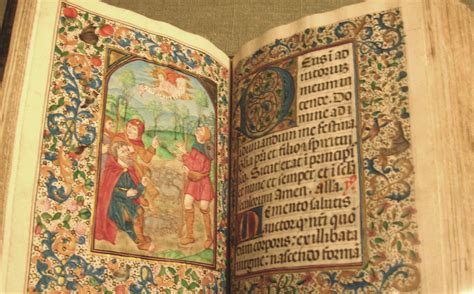 Deus i ad
iutorium
meum in
tende. Do
mine ad i
uuandum me festina
Glia pri et filio et spiritui
Sicut erat i principi
et nunc et semper et i secl
lorum amen. alla.
Memento salutis
auctor qnri quo
dam corporis: ex illibata
virgine: nascendo forma